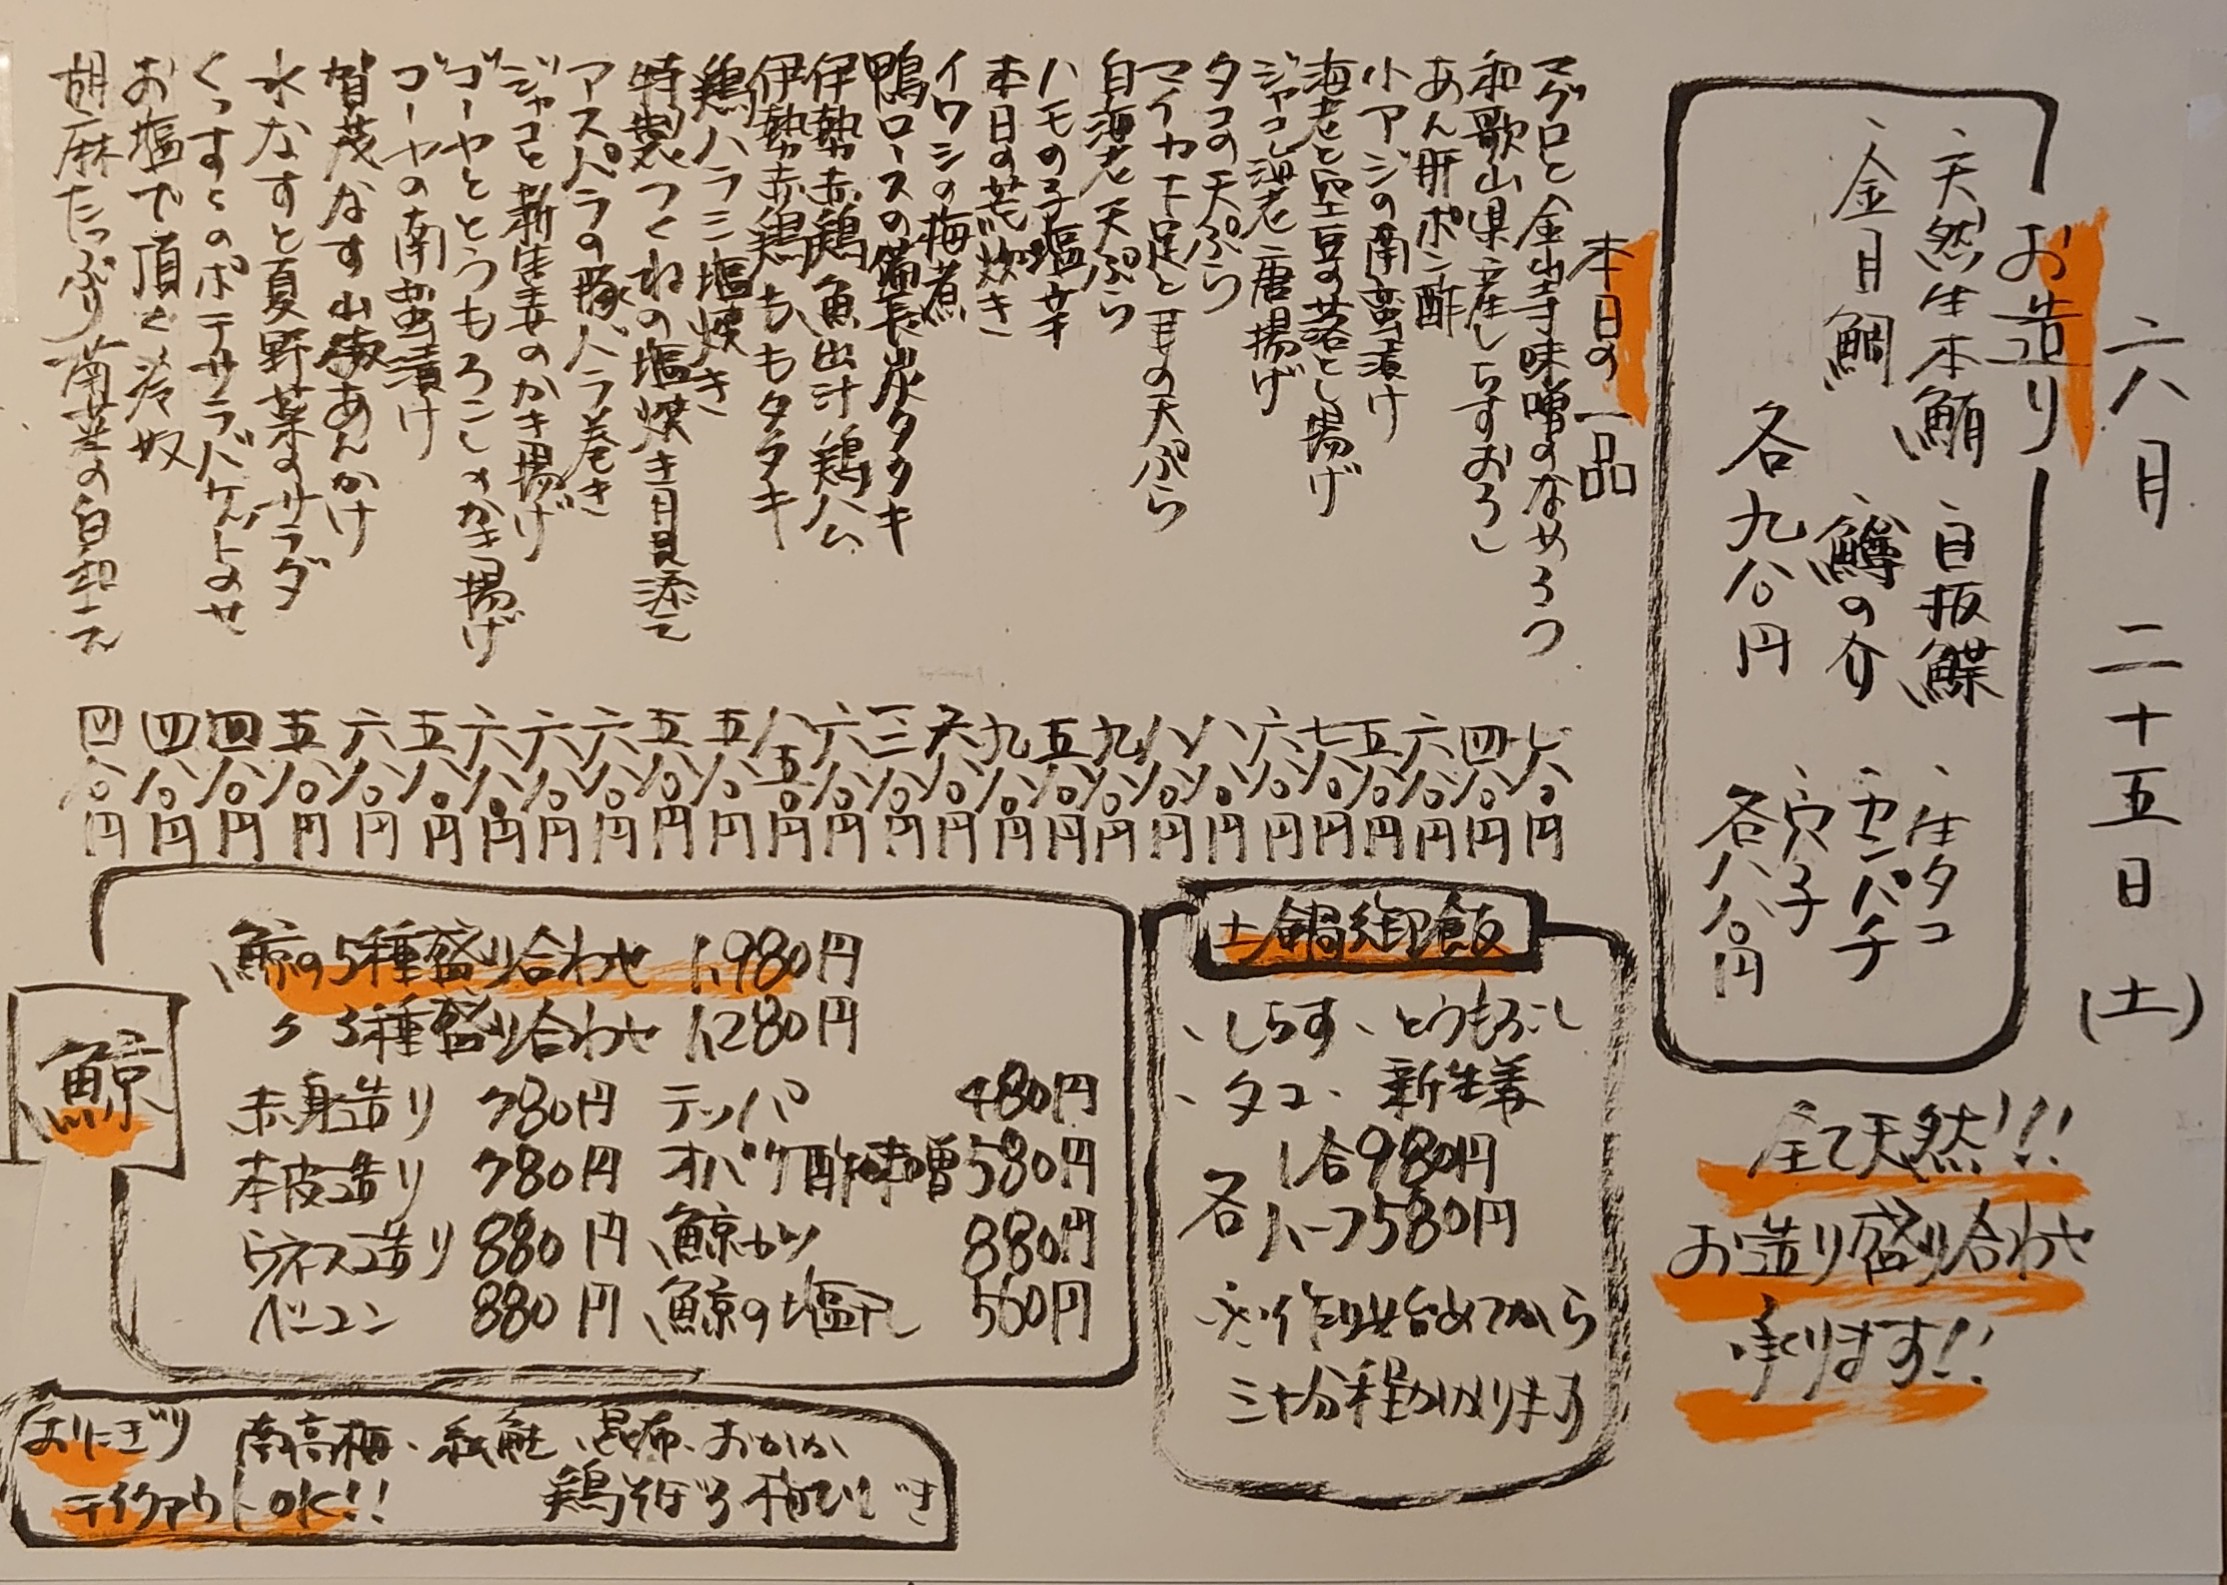 六月 二十五日 (土)
お造り
、天然生本鮪 、目板鰈 、生タコ
、金目鯛 、鱒の介 、カンパチ
、穴子
各九八〇円
各八八〇円
全て天然!!!
お造り盛り合わせ
承ります!!
本日の一品
マグロと金山寺味噌のなめろう 六八〇円
和歌山県産しらすおろし 四八〇円
あん肝ポン酢 六八〇円
小アジの南蛮漬け 五八〇円
海老と空豆の落とし揚げ 七八〇円
ジャコ海老唐揚げ 六八〇円
タコの天ぷら 八八〇円
マイカ下足と耳の天ぷら 八八〇円
白海老天ぷら 九八〇円
ハモの子塩辛 五八〇円
本日の荒炊き 九八〇円
イワシの梅煮 六八〇円
鴨ロースの備長炭タタキ 三八〇円
伊勢赤鶏 魚出汁 鶏ハム 六八〇円
伊勢赤鶏ももタタキ 八五〇円
鶏ハラミ塩焼き 五八〇円
特製つくねの塩焼き月見添え 五八〇円
アスパラの豚バラ巻き 六八〇円
ジャコと新生姜のかき揚げ 六八〇円
ゴーヤととうもろこしのかき揚げ 六八〇円
ゴーヤの南蛮漬け 五八〇円
賀茂なす山椒あんかけ 六八〇円
水なすと夏野菜のサラダ 五八〇円
くっすとのポテサラバゲットのせ 四八〇円
お塩で頂く冷奴 四八〇円
胡麻たっぷり南京の白和え 四八〇円
土鍋御飯
、しらす、とうもろこし
、タコ、新生姜
各 1合980円
ハーフ580円
※作り始めてから
三十分程かかります
鯨
鯨の5種盛り合わせ 1,980円
〃 3種盛り合わせ 1,280円
赤身造り 780円 テッパ 480円
本皮造り 780円 オバケ酢味噌 580円
ウネス造り 880円 鯨カツ 880円
ベーコン 880円 鯨の塩だし 580円
おにぎり 南高梅、紅鮭、昆布、おかか
テイクアウトOK!! 鶏そぼろ 梅ひじき